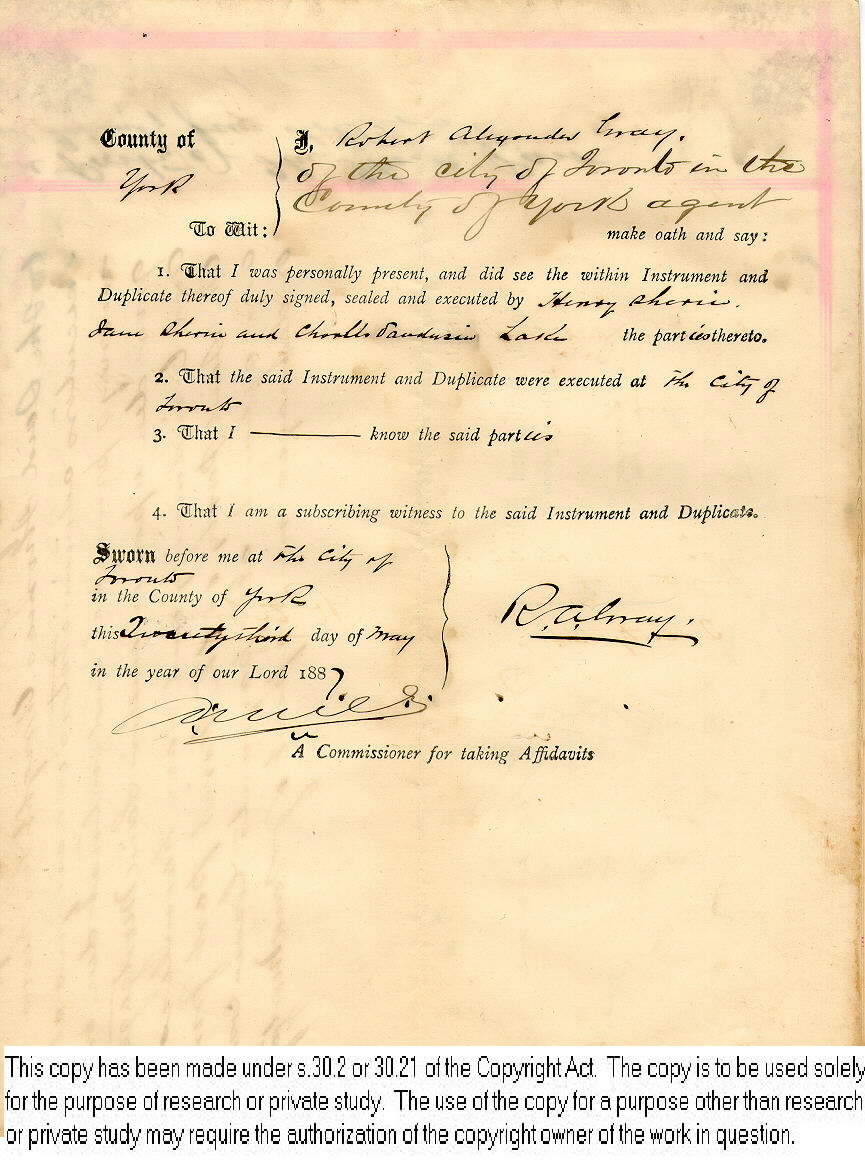 County of
York
To Wit:
I, Robert Alexander Gray.
of the city of Toronto in the
County of York agent
make oath and say:
1. That I was personally present, and did see the within Instrument and
Duplicate thereof duly signed, sealed and executed by Henry Sherin.
Jane Sherin and Charles Lake the parties thereto.
2. That the said Instrument and Duplicate were executed at the City of
Toronto
3. That I know the said parties
4. That I am a subscribing witness to the said Instrument and Duplicate.
Sworn before me at the City of
Toronto
in the County of York
this Twenty third day of May
in the year of our Lord 1887
R. A. Gray.
A Commissioner for taking Affidavits
This copy has been made under s.30.2 or 30.21 of the Copyright Act. The copy is to be used solely
for the purpose of research or private study. The use of the copy for a purpose other than research
or private study may require the authorization of the copyright owner of the work in question.